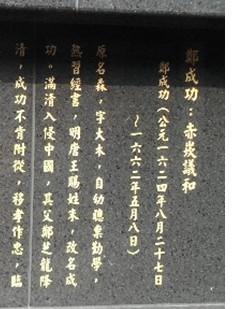 鄭成功：赤崁議和
鄭成功（公元一六二四年八月二十七日
～一六六二年五月八日）
原名森，字大木，自幼聰東勤學，
熟習經書，明唐王賜姓朱，改名成
功。滿清入侵中國，其父鄭芝龍降
清，成功不肯附從，移孝作忠，臨